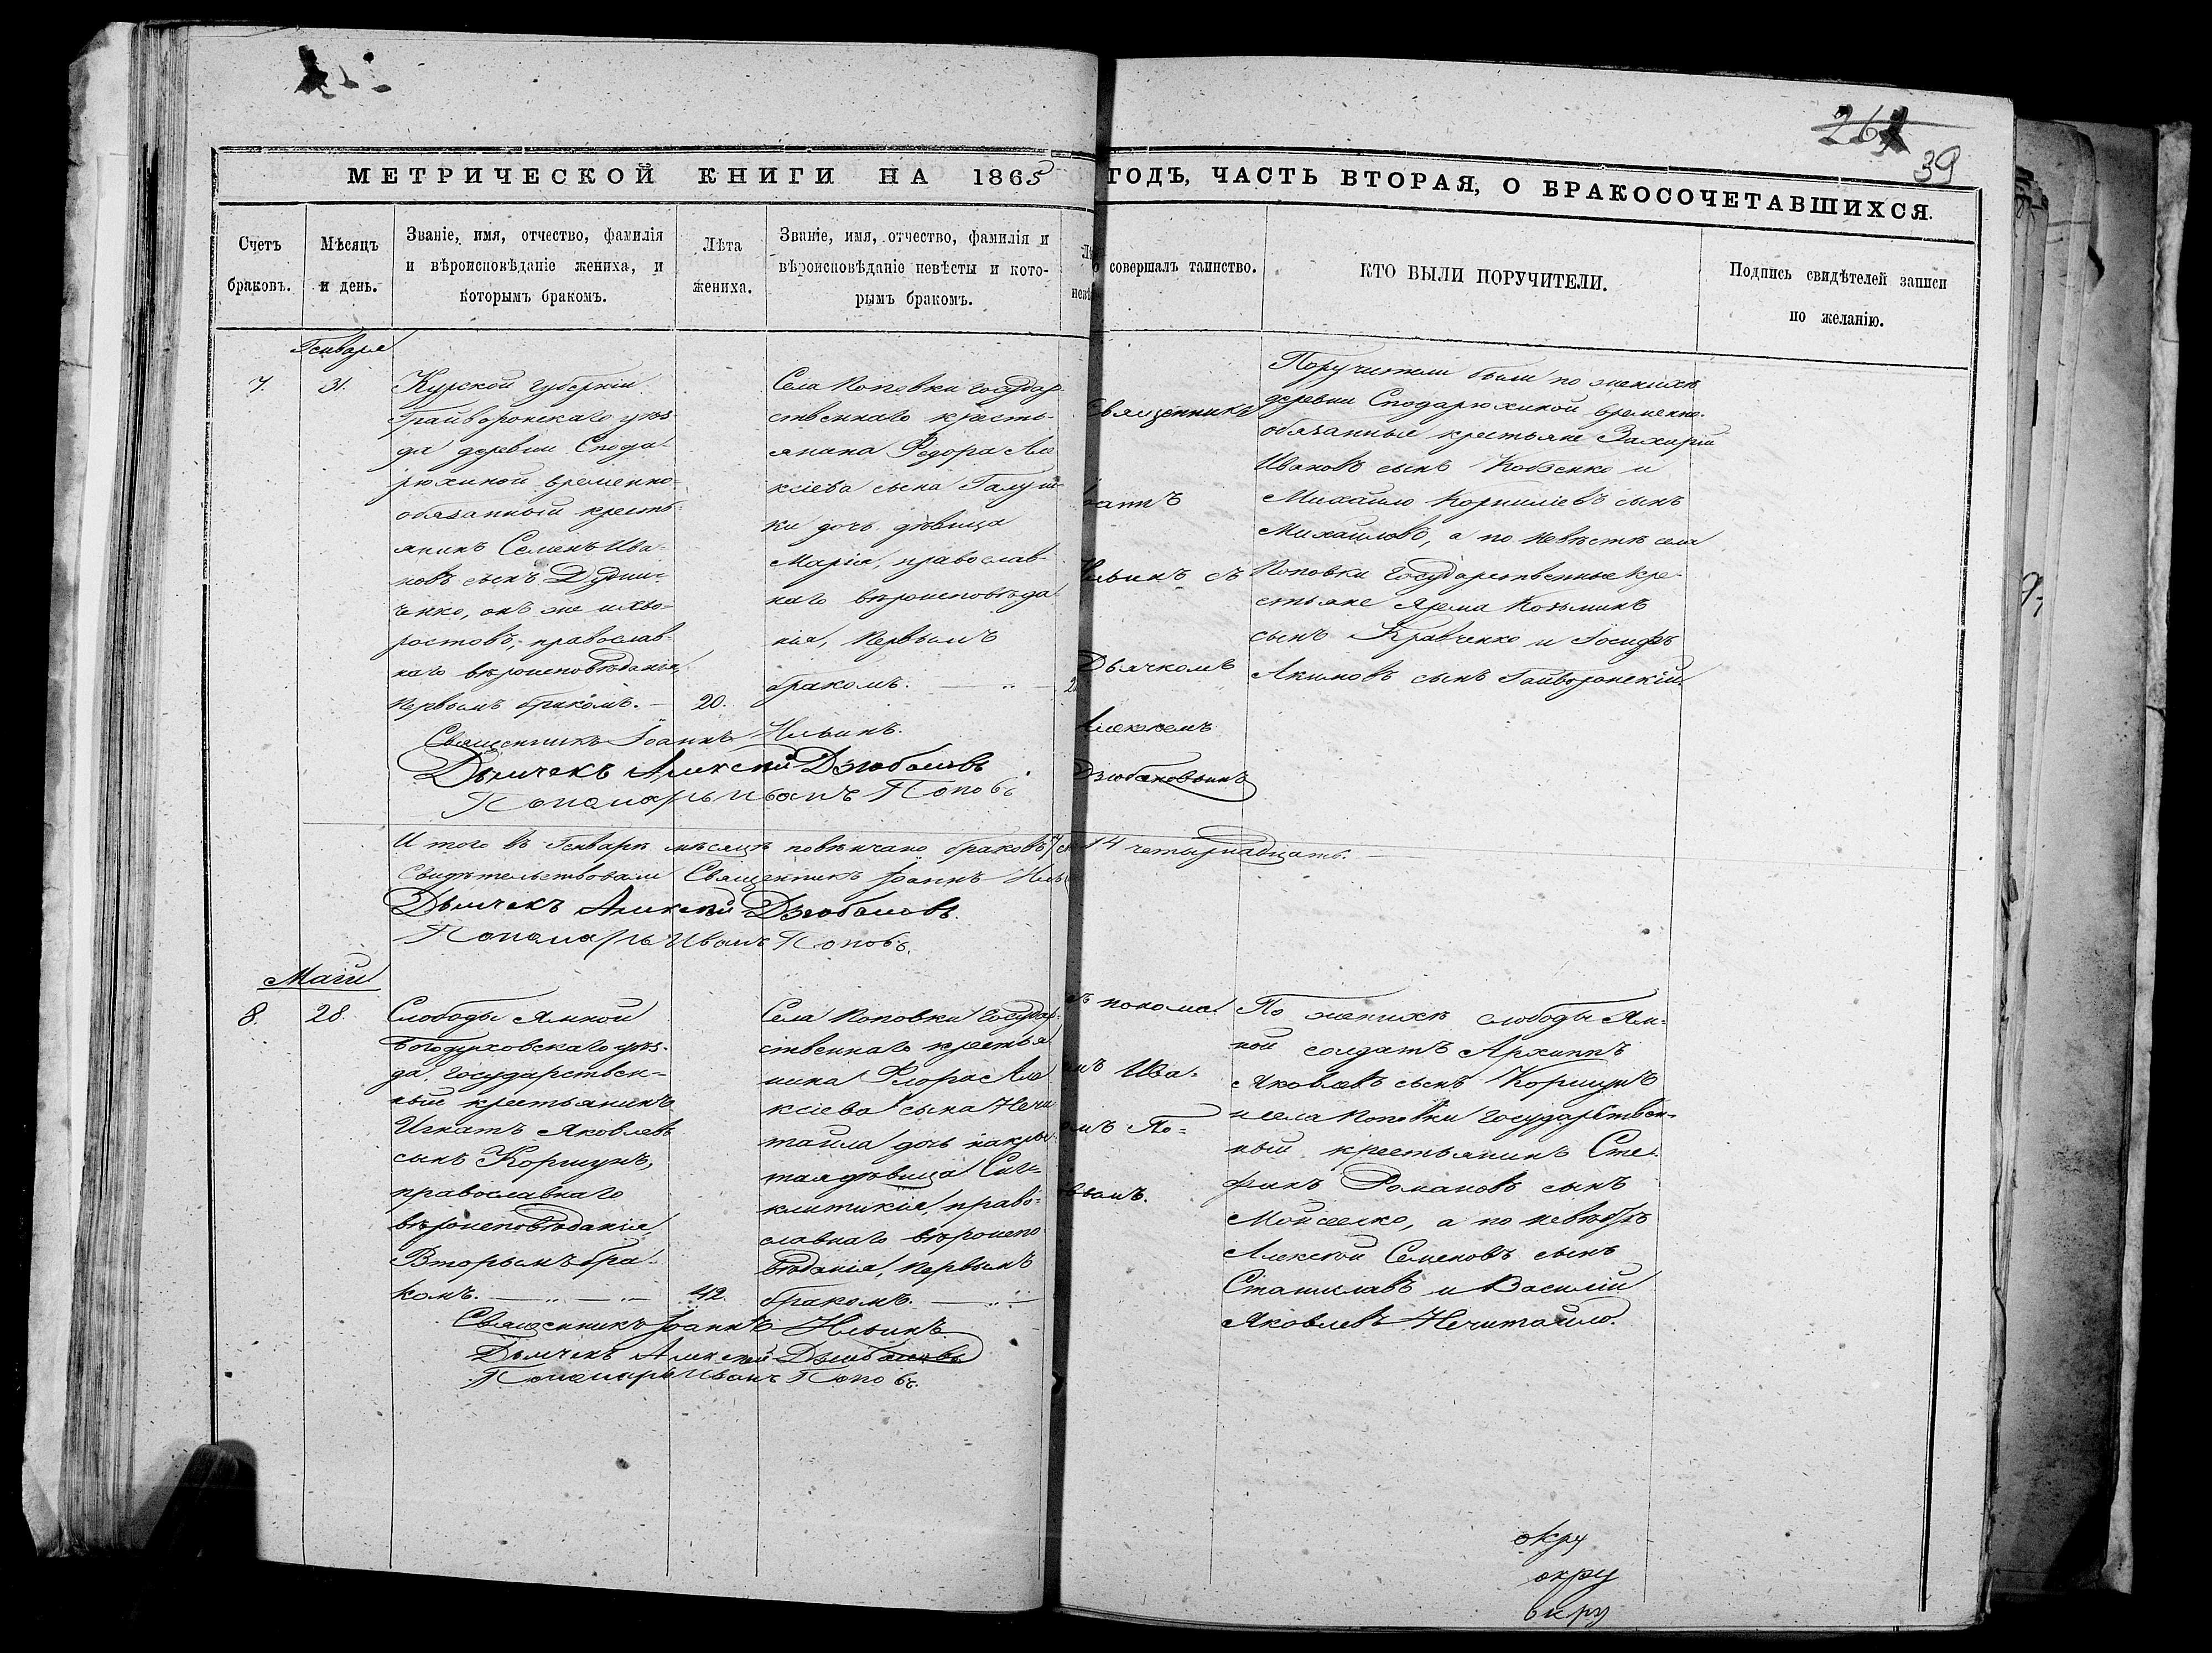 261
39
МЕТРИЧЕСКОЙ КНИГИ НА 1865 ГОДЪ, ЧАСТЬ ВТОРАЯ, О БРАКОСОЧЕТАВШИХСЯ.
Счетъ
браковъ.
Мѣсяцъ
и день.
Званіе, имя, отчество, фамилія
и вѣроисповѣданіе жениха, и
которымъ бракомъ.
Лѣта
жениха.
Званіе, имя, отчество, фамилія и
вѣроисповѣданіе невѣсты и кото-
рымъ бракомъ.
совершалъ таинство.
КТО БЫЛИ ПОРУЧИТЕЛИ.
Подпись свидѣтелей записи
по желанію.
Генваря
7.
31.
Курской губерніи
Грайворонскаго уѣз-
да деревни Спода-
рюхиной временно-
обязанный кресть-
янинъ Семенъ Ива-
новъ сынъ Дудни-
ченко, онъ же и Хво-
ростовъ, православ-
наго вѣроисповѣданія,
первымъ бракомъ.
20.
Села Поповки государ-
ственнаго кресть-
янина Федора Але
ксіева сына Галуш-
ки дочь дѣвица
Марія, православ-
наго вѣроисповѣда
нія, первымъ
бракомъ.
Священникъ
оаннъ
Ильинъ съ
Дьячкомъ
Алексіемъ
Дзюбановымъ
Поручители были по женихѣ
деревни Сподарюхиной временно-
обязанные крестьяне Захарій
Ивановъ сынъ Кобзенко и
Михайло Корниліевъ сынъ
Михаиловъ, а по невѣстѣ села
Поповки государственные кре-
стьяне Ярема Козьминъ
сынъ Кравченко и Іосифъ
Акимовъ сынъ Гайворонскій.
Священникъ Іоаннъ Ильинъ.
Дьячекъ Алексѣй Дзюбановъ
Пономарь Иванъ Поповъ
И того въ Генварѣ мѣсяцѣ повѣнчано браковъ 7 14 четырнадцать.
Свидѣтельствовали Священникъ Іоаннъ Иль
Дьячекъ Алексѣй Дзюбановъ.
Пономарь Иванъ Поповъ.
Маги
8.
28.
Слободы Ямной
Богодуховскаго уѣз-
да государствен-
ный крестьянинъ
Игнатъ Яковлевъ
сынъ Коршунъ,
православнаго
вѣроисповѣданія,
Вторымъ бра-
комъ.
42.
Села Поповки государ-
ственнаго крестья
нина Флора Але
ксіева сына Нечи
тайла дочь накры-
тая дѣвица Син-
клитикія, право-
славнаго вѣроиспо
вѣданія, первымъ
бракомъ.
съ понома-
мъ Ива-
омъ По-
вымъ.
По женихѣ слободы Ям-
ной солдатъ Архиппъ
Яковлевъ сынъ Коршунъ
и села Поповки государствен-
ный крестьянинъ Сте-
фанъ Романовъ сынъ
Мойсеенко, а по невѣстѣ
Алексѣй Семеновъ сынъ
Станиславъ и Василій
Яковлевъ Нечитайло.
Священникъ Іоаннъ Ильинъ.
Дьячекъ Алексѣй Дзюбановъ
Пономарь Иванъ Поповъ.
окру
окру
окру